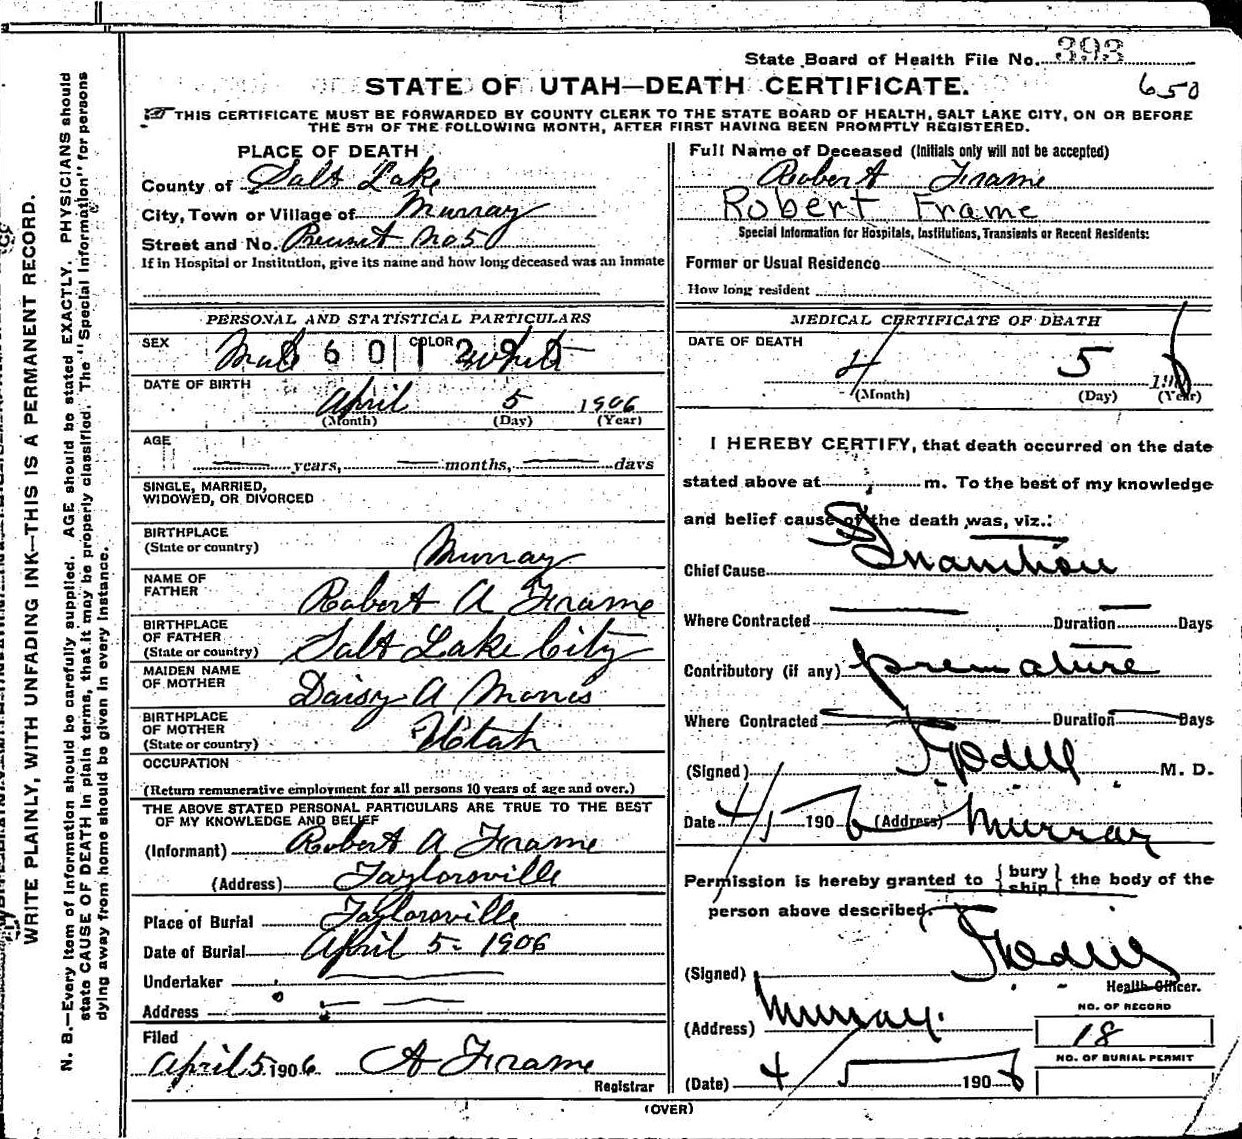 State Board of Health File No. 393
STATE OF UTAH—DEATH CERTIFICATE.
650
THIS CERTIFICATE MUST BE FORWARDED BY COUNTY CLERK TO THE STATE BOARD OF HEALTH, SALT LAKE CITY, ON OR BEFORE
THE 5TH OF THE FOLLOWING MONTH, AFTER FIRST HAVING BEEN PROMPTLY REGISTERED.
WRITE PLAINLY, WITH UNFADING INK—THIS IS A PERMANENT RECORD.
N. B.—Every item of information should be carefully supplied. AGE should be stated EXACTLY. PHYSICIANS should
state CAUSE OF DEATH in plain terms, that it may be properly classified. The "Special Information" for persons
dying away from home should be given in every instance.
PLACE OF DEATH
County of Salt Lake
City, Town or Village of Murray
Street and No. Precinct No 5
If in Hospital or Institution, give its name and how long deceased was an Inmate
PERSONAL AND STATISTICAL PARTICULARS
SEX Male COLOR White
0601290
DATE OF BIRTH
April 5 1906
(Month) (Day) (Year)
AGE
years, months, days
SINGLE, MARRIED,
WIDOWED, OR DIVORCED
BIRTHPLACE
(State or country) Murray
NAME OF
FATHER Robert A Frame
BIRTHPLACE
OF FATHER
(State or country) Salt Lake City
MAIDEN NAME
OF MOTHER Daisy A Morris
BIRTHPLACE
OF MOTHER
(State or country) Utah
OCCUPATION
(Return remunerative employment for all persons 10 years of age and over.)
THE ABOVE STATED PERSONAL PARTICULARS ARE TRUE TO THE BEST
OF MY KNOWLEDGE AND BELIEF
(Informant) Robert A Frame
(Address) Taylorsville
Place of Burial Taylorsville
Date of Burial April 5- 1906
Undertaker
Address
Filed
April 5 1906 A Frame
Registrar
Full Name of Deceased (Initials only will not be accepted)
Robert Frame
Robert Frame
Special Information for Hospitals, Institutions, Transients or Recent Residents:
Former or Usual Residence
How long resident
MEDICAL CERTIFICATE OF DEATH
DATE OF DEATH
4 5 1906
(Month) (Day) (Year)
I HEREBY CERTIFY, that death occurred on the date
stated above at m. To the best of my knowledge
and belief cause of the death was, viz.:
Chief Cause Inanition
Where Contracted Duration Days
Contributory (if any) premature
Where Contracted Duration Days
(Signed) M. D.
Date 4/5 1906 (Address) Murray
Permission is hereby granted to {bury
ship} the body of the
person above described.
(Signed)
Health Officer.
(Address) Murray.
NO. OF RECORD
18
NO. OF BURIAL PERMIT
(Date) 4 5 1906
(OVER)